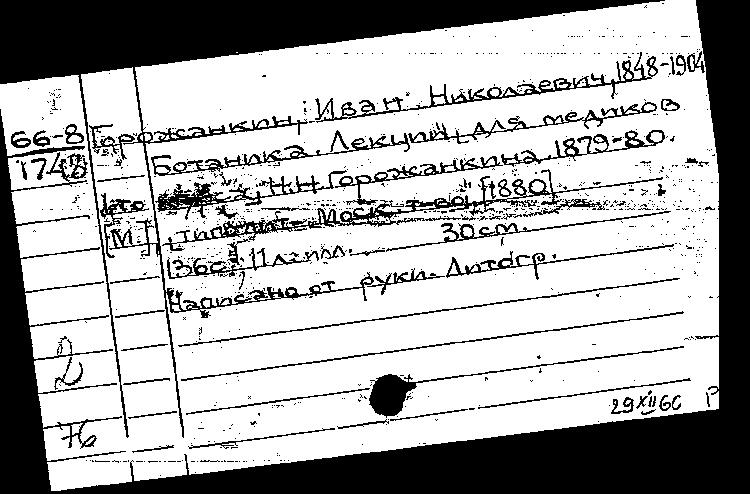 66-8 Горожанкин, Иван Николаевич, 1848-1904
174 Ботаника. Лекции для медиков
Н.Н. Горожанкина. 1879-80.
[М.], "типолит. Моск. т-ва", [1880].
136с., 11 л. илл. 30 cm.
Написано от руки. Литогр.
2
76
29 XII 60 Р